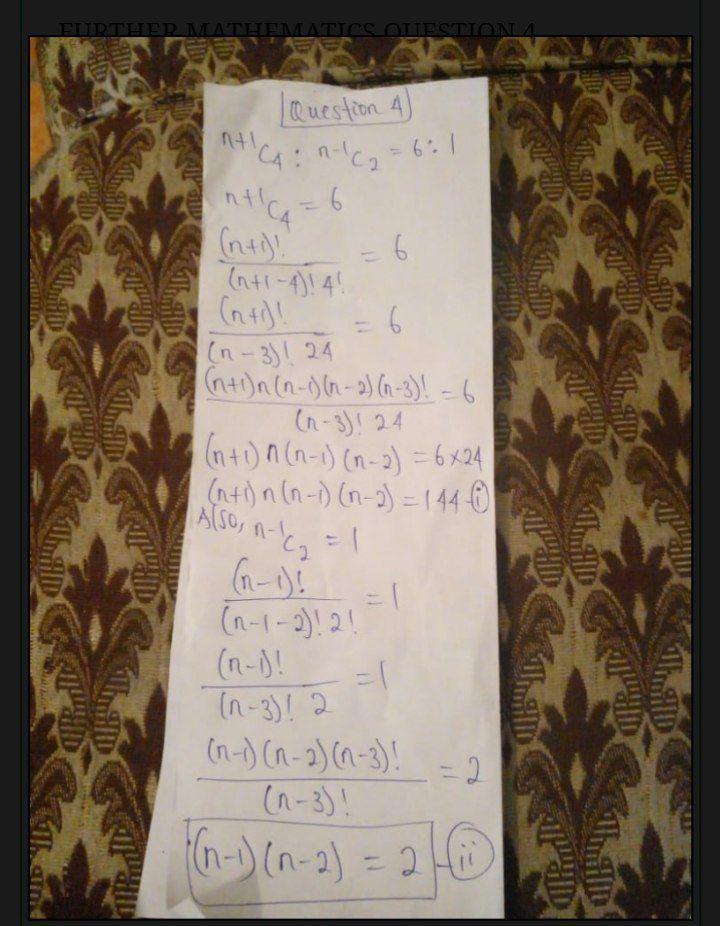 FURTHER MATHEMATICS QUESTION 4
Question 4
n+1C4 : n-1C2 = 6:1
n+1C4 = 6
(n+1)!/(n+1-4)! 4! = 6
(n+1)!/(n-3)! 24 = 6
(n+1)n(n-1)(n-2)(n-3)!/(n-3)! 24 = 6
(n+1)n(n-1)(n-2) = 6×24
(n+1)n(n-1)(n-2) = 144-(i)
Also, n-1C2 = 1
(n-1)!/(n-1-2)! 2! = 1
(n-1)!/(n-3)! 2 = 1
(n-1)(n-2)(n-3)!/(n-3)! = 2
(n-1)(n-2) = 2 -(ii)